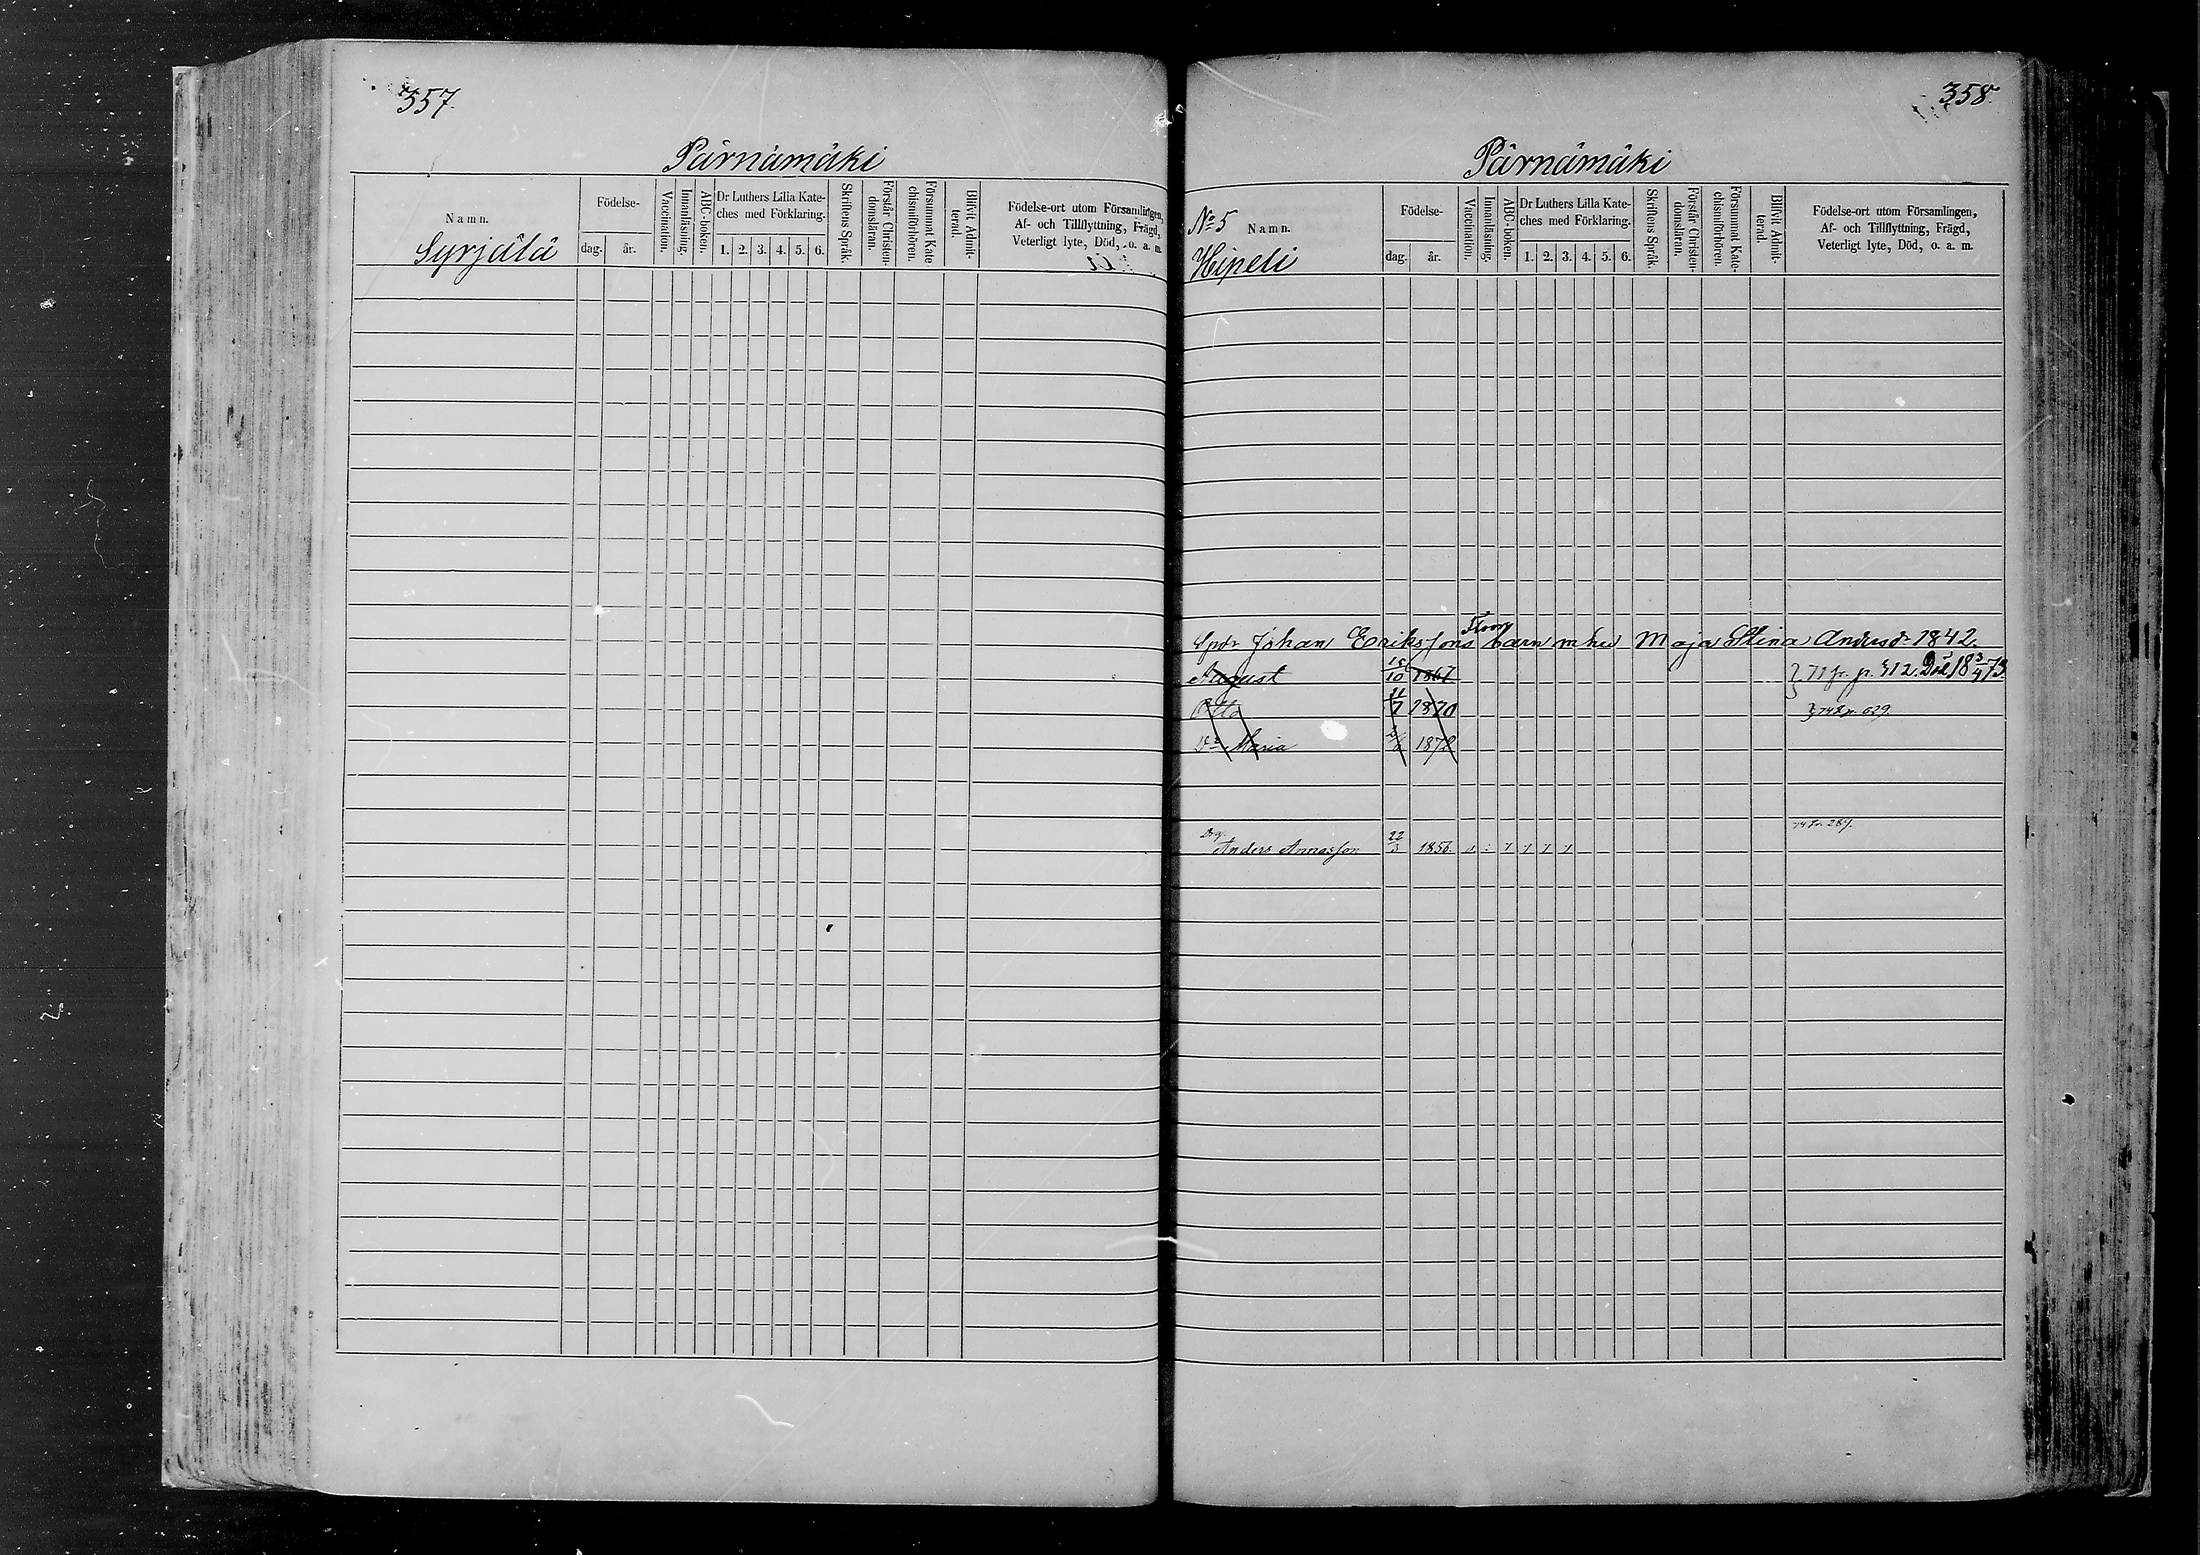 357.
Pärnämäki
Namn.
Syrjälä
Födelse-
dag. år.
Vaccination.
Innanläsning.
ABC-boken.
Dr Luthers Lilla Kate-
ches med Förklaring.
1. 2. 3. 4. 5. 6.
Skriftens Språk.
Förstår Christen-
domsläran.
Försummat Kate
chismiförhören.
Blifvit Admit-
terad.
Födelse-ort utom Församlingen,
Af- och Tillflyttning, Frägd,
Veterligt lyte, Död, o. a. m.
358.
Pärnämäki
No 5 Namn.
Hipeli
Födelse-
dag. år.
Vaccination.
Innanläsning.
ABC-boken.
Dr Luthers Lilla Kate-
ches med Förklaring.
1. 2. 3. 4. 5. 6.
Skriftens Språk.
Förstår Christen-
domsläran.
Försummat Kate-
chismiförhören.
Blifvit Admit-
terad.
Födelse-ort utom Församlingen,
Af- och Tillflyttning, Frägd,
Veterligt lyte, Död, o. a. m.
Johan Erikssons barn m hu Maja Stina Andersdr 1842
August 10 1867 71 fr. p. 312. Död 18 3/4 73
Otto 7 1870 74 p. 629.
Dr Maria 1872
74 fr. 287.
Drg. Anders Annasson 22/3 1856